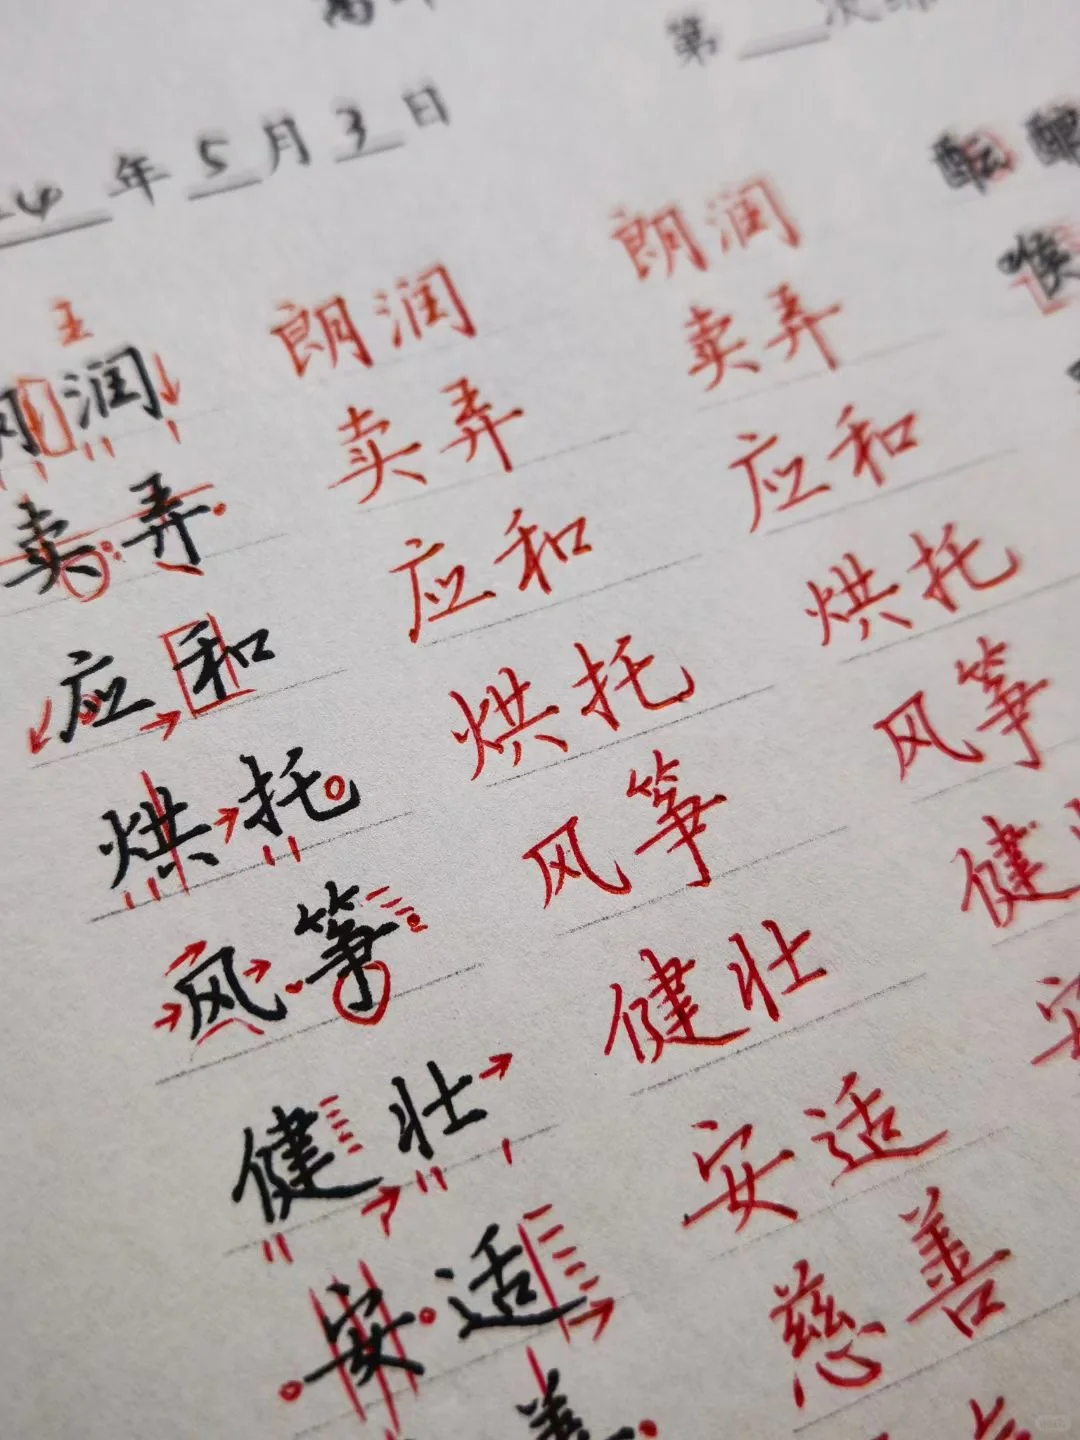 第
4 年 5 月 3 日
王
润 朗润 朗润
卖弄 卖弄 卖弄
应和 应和 应和
烘托 烘托 烘托
风筝 风筝 风筝
健壮 健壮 健
安适 安适 安
善 慈善